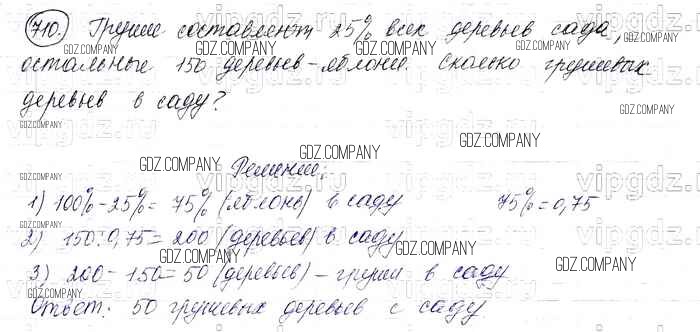 710. Груши составляют 25% всех деревьев сада,
остальные 150 деревьев - яблони. Сколько грушевых
деревьев в саду?
Решение:
1) 100% - 25% = 75% (яблонь) в саду 75% = 0,75
2) 150 : 0,75 = 200 (деревьев) в саду
3) 200 - 150 = 50 (деревьев) - груши в саду
Ответ: 50 грушевых деревьев с саду
GDZ.COMPANY
vipgdz.ru